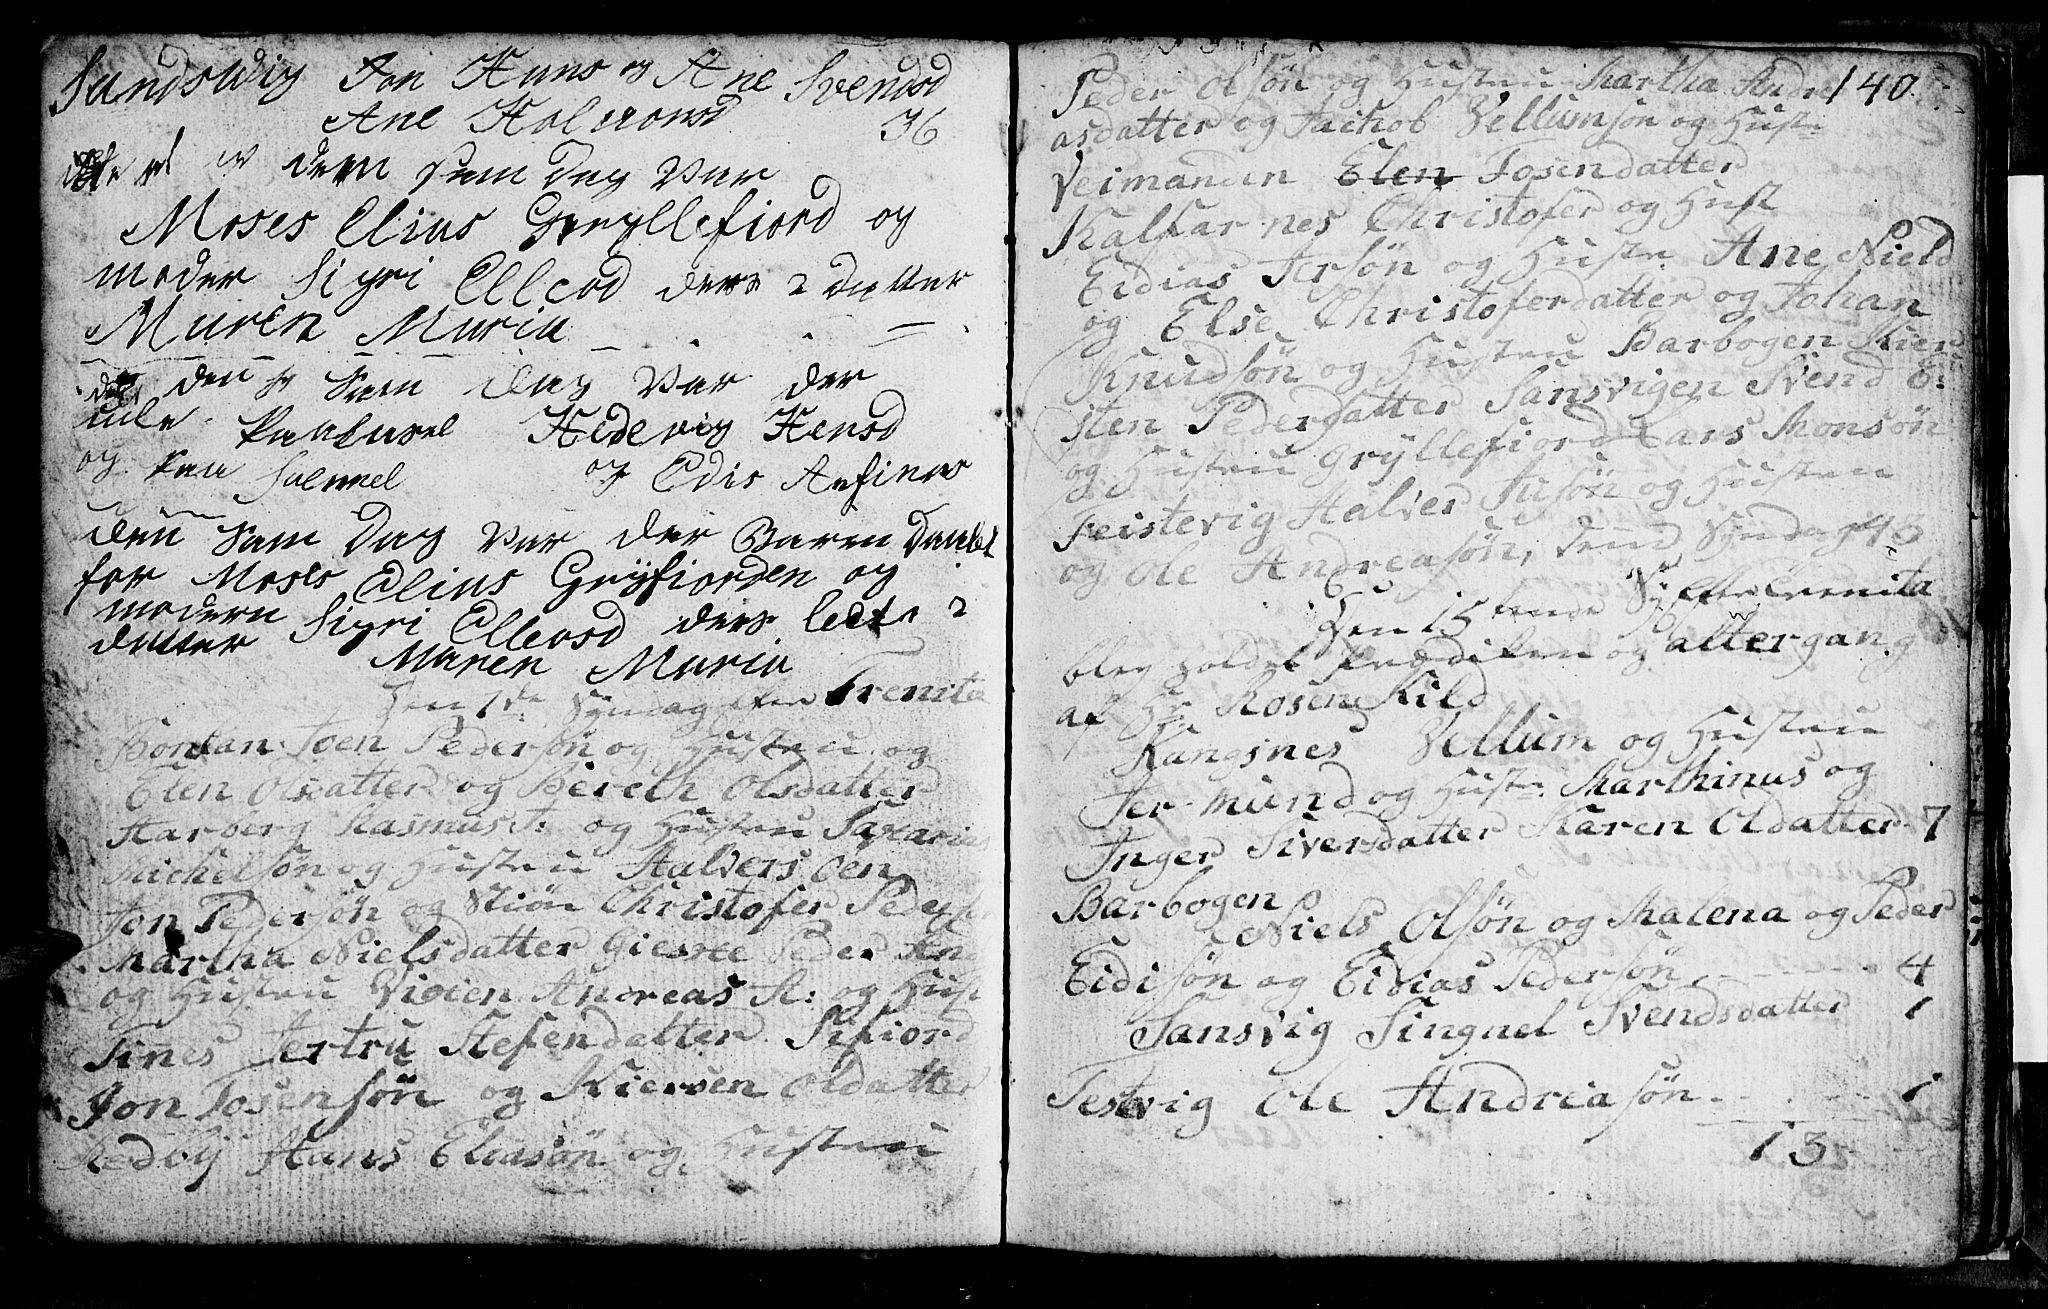 Sandswig Jon Hans og Ane Svendsd
Ane Halvorsd 36
dem sam Dag Var
Moses Elius Gryllefiord og
moder Sigri Ellevsd ders 2 Datter
Maren Maria
den sam Dag Var der
Hedevig Hensd
og og Edis
den sam Dag Var der Baren Danbt
for Moses Elius Gryfiorden og
modern Sigri Ellevsd ders 2
datter Maren Maria
Den 1de Syndag efter Trenita
Joen Pedersøn og Husteu og
Elen Olsdatter og Bereth Olsdatter
Aarberg Rasmus A: og Husteu
Michelsøn og Husteu Halvers øen
Jon Pedersøn og Christofer Peders
Martha Nielsdatter Giesvee Peder And
og Husteu Vigien Andreas A: og Hust
Tines Jertru Stefendatter Sifiord
Jon Tosensøn og Kiersen Oldatter
Stedby Hans Eliasøn og Husteu
140
Peder Olsøn og Husteu Martha Andre
asdatter og Jachob Vellumsøn og Hust
Veimanden Elen Tosendatter
Kalfarnes Christofer og Hust
Eidias Jersøn og Huste Ane Nield
og Else Christoferdatter og Johan
Knudsøn og Husteu Barbogen Kier
sten Pedersdatter Sansvigen Svend E:
og Husteu Gryllefiord Lars Monsøn
Feistevig Halver Jusøn og Husteu
og Ole Andreasøn, dend Syndag 43
Den 15tende S: efter Trenita
blev holdet Prædiken og altergang
af Hr Rosen Kild
Kangsnes Vellum og Husteu
Jermund og Hust: Marthinus og
Inger Siversdatter Karen Oldatter 7
Barbogen
Niels Olsøn og Malena og Peder
Eidisøn og Eidias Pedersøn 4
Sansvig Singnel Svendsdatter 1
Testvig Ole Andreasøn 1
13